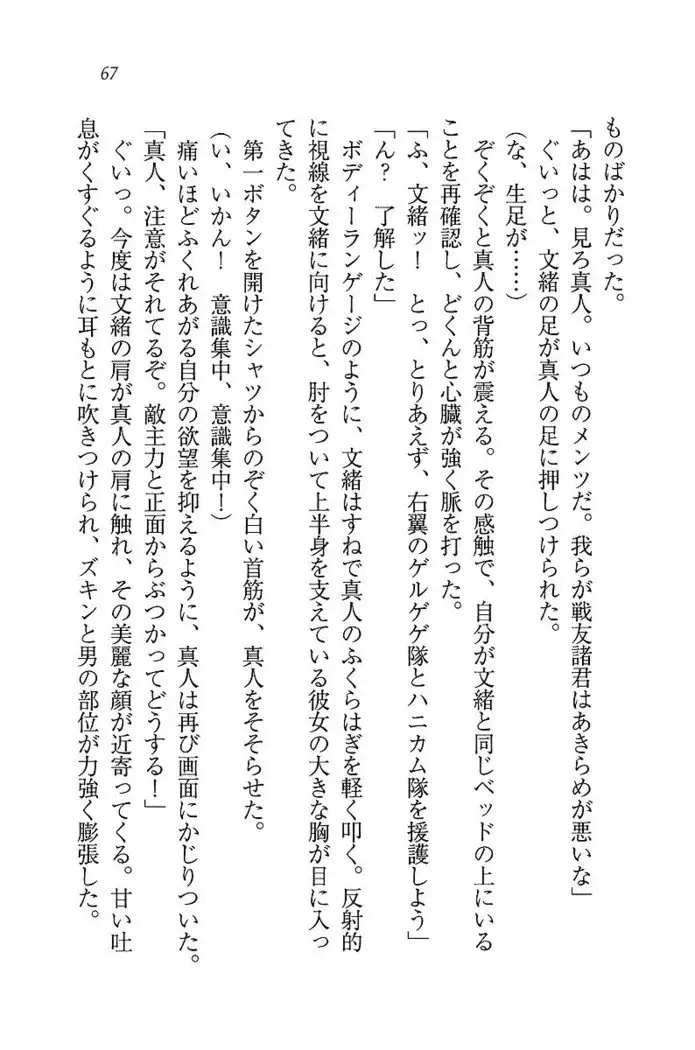 67
ものばかりだった。
「あはは。見ろ真人。いつものメンツだ。我らが戦友諸君はあきらめが悪いな」
ぐいっと、文緒の足が真人の足に押しつけられた。
(な、生足が……)
ぞくぞくと真人の背筋が震える。その感触で、自分が文緒と同じベッドの上にいる
ことを再確認し、どくんと心臓が強く脈を打った。
「ふ、文緒ッ! とっ、とりあえず、右翼のゲルゲゲ隊とハニカム隊を援護しよう」
「ん? 了解した」
ボディーランゲージのように、文緒はすねで真人のふくらはぎを軽く叩く。反射的
に視線を文緒に向けると、肘をついて上半身を支えている彼女の大きな胸が目に入っ
てきた。
第一ボタンを開けたシャツからのぞく白い首筋が、真人をそそらせた。
(い、いかん! 意識集中、意識集中!)
痛いほどふくれあがる自分の欲望を抑えるように、真人は再び画面にかじりついた。
「真人、注意がそれてるぞ。敵主力と正面からぶつかってどうする!」
ぐいっ。今度は文緒の肩が真人の肩に触れ、その美麗な顔が近寄ってくる。甘い吐
息がくすぐるように耳もとに吹きつけられ、ズキンと男の部位が力強く膨張した。